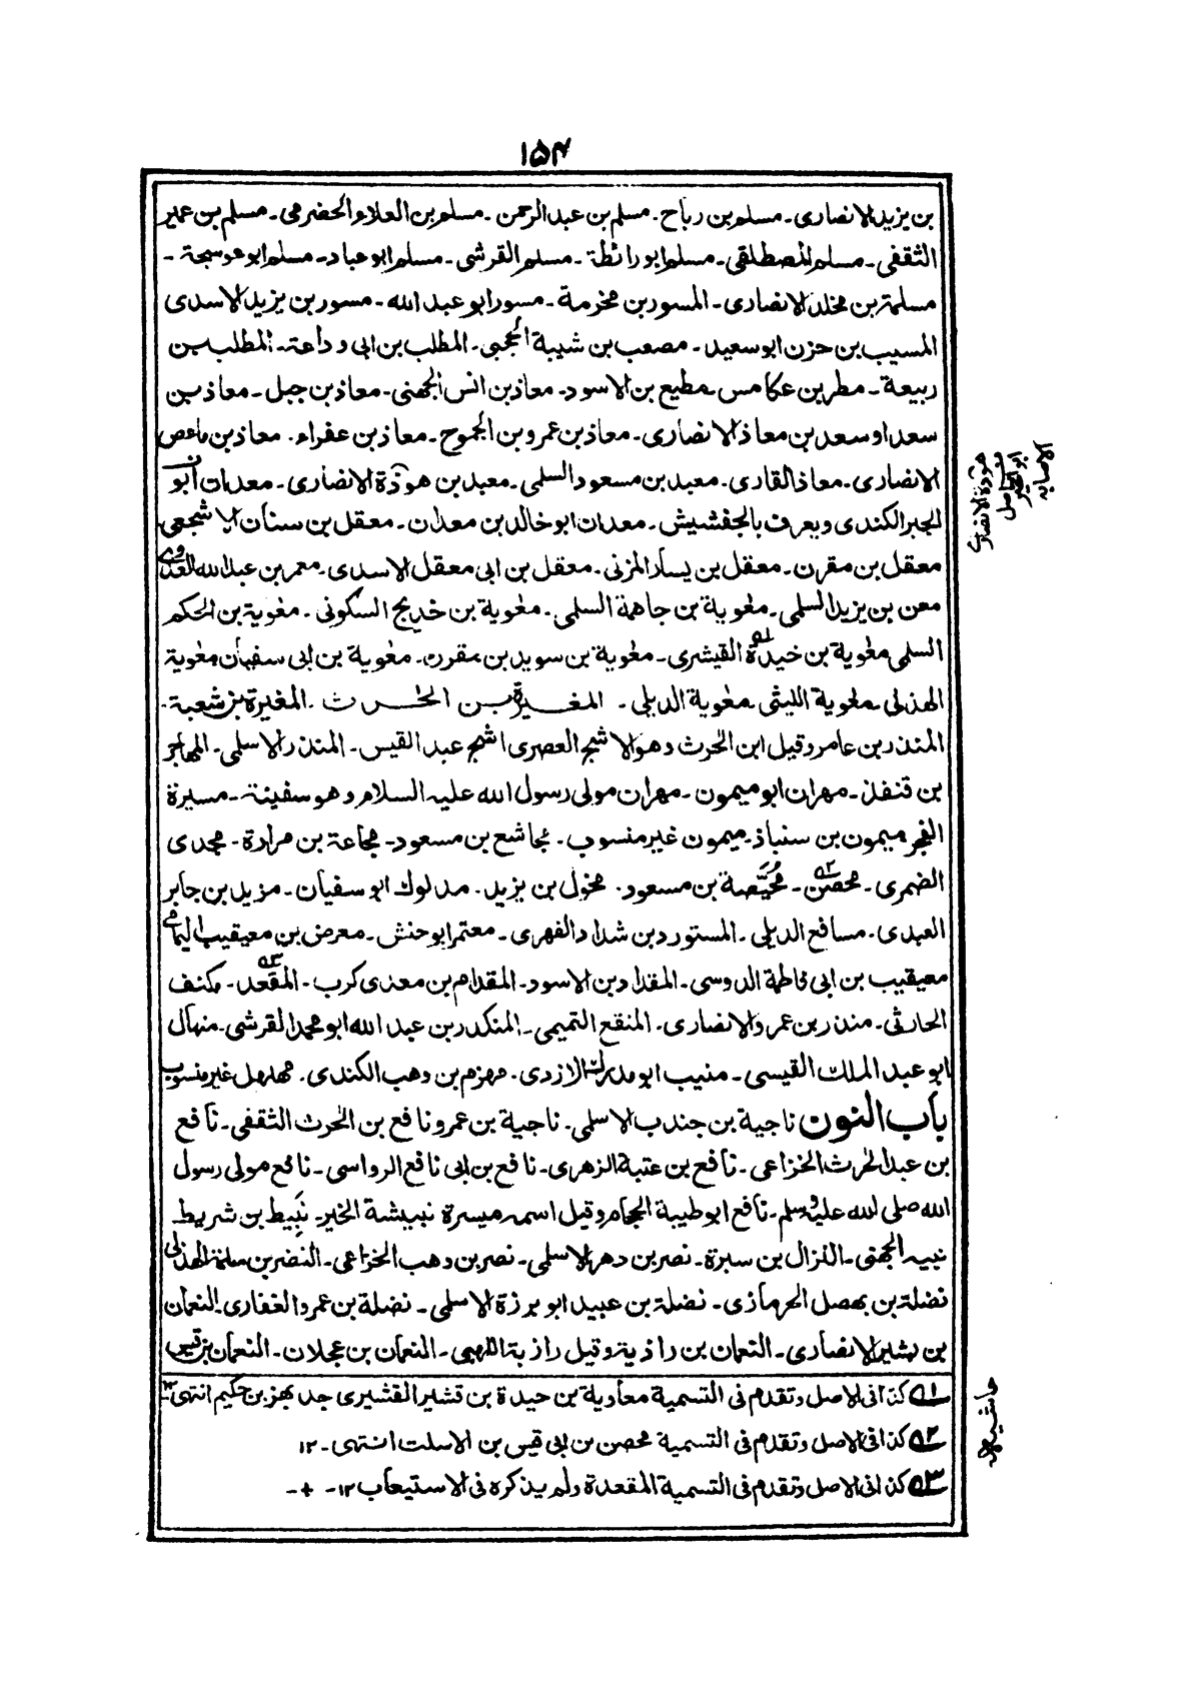 ١٥٤
بن يزيد الانصارى۔ مسلم بن رباح۔ مسلم بن عبد الرحمن۔ مسلم بن العلاء الحضرمى۔ مسلم بن عمير
الثقفى۔ مسلم المصطلقى۔ مسلم ابو رائطة۔ مسلم القرشى۔ مسلم ابو عباد۔ مسلم ابو عوسجة۔
مسلمة بن مخلد الانصارى۔ المسور بن مخرمة۔ مسور ابو عبد الله۔ مسور بن يزيد الاسدى
المسيب بن حزن ابو سعيد۔ مصعب بن شيبة الحجبى۔ المطلب بن ابى وداعة۔ المطلب بن
ربيعة۔ مطر بن عكامس۔ مطيع بن الاسود۔ معاذ بن انس الجهنى۔ معاذ بن جبل۔ معاذ بن
سعد او سعد بن معاذ الانصارى۔ معاذ بن عمرو بن الجموح۔ معاذ بن عفراء۔ معاذ بن ماعص
الانصارى۔ معاذ القارى۔ معبد بن مسعود السلمى۔ معبد بن هوذة الانصارى۔ معدان ابو
الجبر الكندى ويعرف بالجفشيش۔ معدان ابو خالد بن معدان۔ معقل بن سنان الاشجعى
معقل بن مقرن۔ معقل بن يسار المزنى۔ معقل بن ابى معقل الاسدى۔ معمر بن عبد الله العدوى
معن بن يزيد السلمى۔ معٰوية بن جاهمة السلمى۔ معٰوية بن خديج السكونى۔ معٰوية بن الحكم
السلمى معٰوية بن خيدة ٥١ القيشرى۔ معٰوية بن سويد بن مقرن۔ معٰوية بن ابى سفيان معٰوية
الهذلى۔ معٰوية الليثى۔ معٰوية الديلى۔ المغيرة بن الحٰرث۔ المغيرة بن شعبة۔
المنذر بن عامر وقيل ابن الحٰرث وهو الاشج العصرى اشج عبد القيس۔ المنذر الاسلمى۔ المهاجر
بن قنفذ۔ مهران ابو ميمون۔ مهران مولى رسول الله عليه السلام وهو سفينة۔ مسيرة
الفجر ميمون بن سنباذ۔ ميمون غير منسوب۔ مجاشع بن مسعود۔ مجاعة بن مرارة۔ مجدى
الضمرى۔ محصن ٥٢۔ مُحَيِّصة بن مسعود۔ مخول بن يزيد۔ مدلوك ابو سفيان۔ مزيد بن جابر
العبدى۔ مسافع الديلى۔ المستورد بن شداد الفهرى۔ معتمر ابو حنش۔ معرض بن معيقيب اليمامى
معيقيب بن ابى فاطمة الدوسى۔ المقداد بن الاسود۔ المقدام بن معدى كرب۔ المقعد ٥٣۔ مكنف
الحارثى۔ منذر بن عمرو الانصارى۔ المنقع التميمى۔ المنكدر بن عبد الله ابو محمد القرشى۔ منهال
ابو عبد الملك القيسى۔ منيب ابو مدرك الازدى۔ مهزم بن وهب الكندى۔ مهلهل غير منسوب
باب النون ناجية بن جندب الاسلمى۔ ناجية بن عمرو نافع بن الحٰرث الثقفى۔ نافع
بن عبد الحٰرث الخزاعى۔ نافع بن عتبة الزهرى۔ نافع بن ابى نافع الرواسى۔ نافع مولى رسول
الله صلى الله عليه وسلم۔ نافع ابو طيبة الحجام وقيل اسمه ميسرة نبيشة الخير۔ نبيط بن شريط
نبيه الجهنى۔ النزال بن سبرة۔ نصر بن دهر الاسلمى۔ نصر بن وهب الخزاعى۔ النضر بن سلمة الهذلى
نضلة بن بهصل الحرمازى۔ نضلة بن عبيد ابو برزة الاسلمى۔ نضلة بن عمرو الغفارى۔ النعمان
بن بشير الانصارى۔ النعمان بن رازية وقيل رازبة اللهبى۔ النعمان بن عجلان۔ النعمان بن قيس
هوذة الانصارى
الاصابه
حاشيه
٥١ كذا فى الاصل وتقدم فى التسمية معاوية بن حيدة بن قشير القشيرى جد بهز بن حكيم انتهى ١٢
٥٢ كذا فى الاصل وتقدم فى التسمية محصن بن ابى قيس بن الاسلت انتهى۔ ١٢
٥٣ كذا فى الاصل وتقدم فى التسمية المقعدة ولم يذكره فى الاستيعاب ١٢۔ +۔